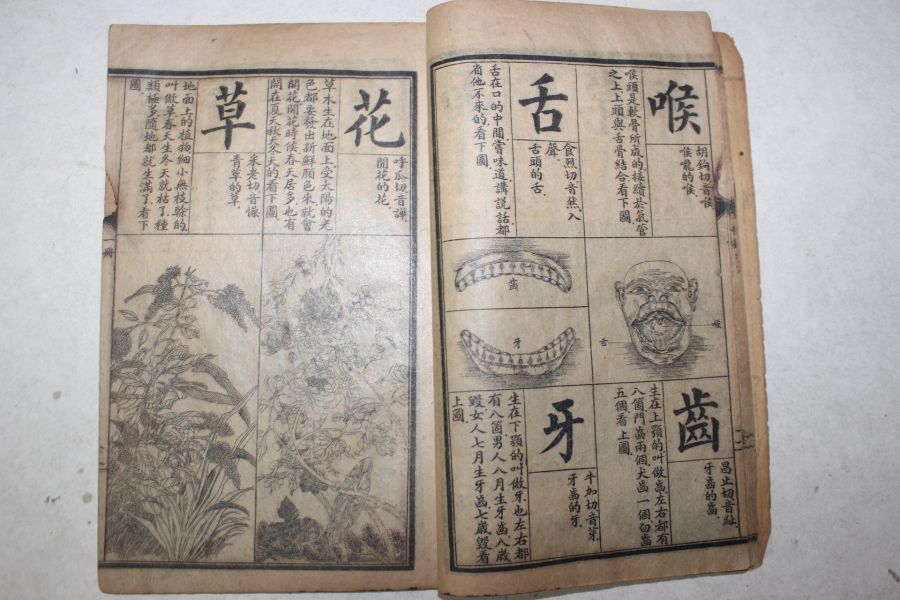 喉
胡鉤切音喉
喉嚨的喉
喉頭是軟骨所成的接續於氣管
之上上頭與舌骨結合看下圖
舌
食烈切音熱入
聲
舌頭的舌
舌在口的中間嘗味道講說話都
省他不來的看下圖
喉
舌
齒
牙
齒
昌止切音
牙齒的齒
生在上顎的叫做齒左右都有
八個門齒兩個犬齒一個臼齒
五個看上圖
牙
牛加切音芽
牙齒的牙
生在下顎的叫做牙也左右都
有八箇男人八月生牙齒八歲
毀女人七月生牙齒七歲毀看
上圖
花
呼瓜切音譁
開花的花
草木生在地面上受太陽的光
色都要發出新鮮顏色來就會
開花開花時候春天居多也有
開在夏天秋天冬天的看下圖
草
采老切音懆
青草的草
地面上的植物細小無枝榦的
叫做草春天生冬天就枯了種
類極多隨地都就生滿了看下
圖